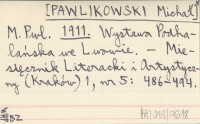 [PAWLIKOWSKI Michał]
M. Pwl. 1911. Wystawa Podha-
lańska we Lwowie. – Mie-
sięcznik Literacki i Artystycz-
ny (Kraków) 1, nr 5: 486-494.
BZ